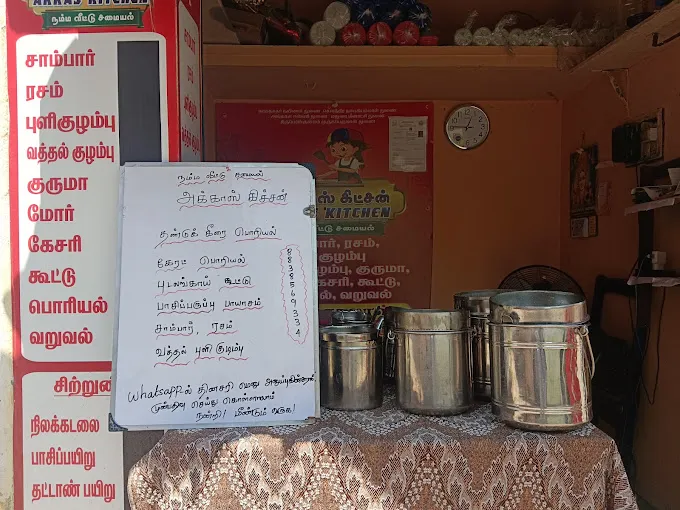 AKKAS KITCHEN
நம்ம வீட்டு சமையல்
சாம்பார்
ரசம்
புளிகுழம்பு
வத்தல் குழம்பு
குருமா
மோர்
கேசரி
கூட்டு
பொரியல்
வறுவல்
நிலக்கடலை
பாசிப்பயிறு
தட்டாண் பயிறு
நம்ம வீட்டு சமையல்
அக்காஸ் கிச்சன்
தண்டுக் கீரை பொரியல்
கேரட் பொரியல்
புடலங்காய் கூட்டு
பாசிப்பருப்பு பாயாசம்
சாம்பார், ரசம்
வத்தல் புளி குழம்பு
8
8
3
8
5
6
9
3
3
4
Whatsappல் தினசரி மெனு அனுப்புகின்றோம்,
முன்பதிவு செய்து கொள்ளலாம்
நன்றி! மீண்டும் வருக!
ஸ் கிட்சன்
KITCHEN
வீட்டு சமையல்
பார், ரசம்,
குழம்பு
குழம்பு, குருமா,
கேசரி, கூட்டு,
ல், வறுவல்